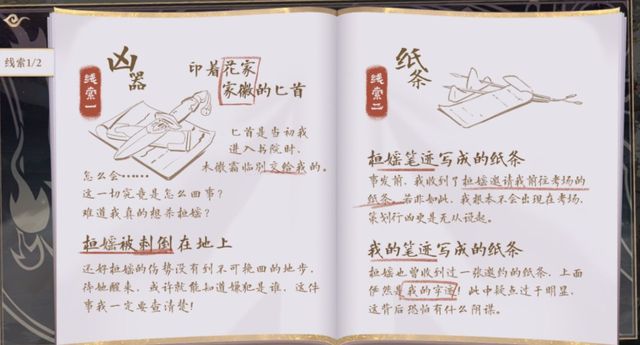 线索1/2
线索一
凶器
印着花家
家徽的匕首
匕首是当初我
进入书院时，
木微霜临别交给我的。
怎么会……
这一切究竟是怎么回事？
难道我真的想杀桓媱？
桓媱被刺倒在地上
还好桓媱的伤势没有到不可挽回的地步，
待她醒来，或许就能知道嫌犯是谁，这件
事我一定要查清楚！
线索二
纸条
桓媱笔迹写成的纸条
事发前，我收到了桓媱邀请我前往考场的
纸条，若非如此，我根本不会出现在考场，
策划行凶更是无从说起。
我的笔迹写成的纸条
桓媱也曾收到过一张邀约的纸条，上面
俨然是我的字迹！此中疑点过于明显，
这背后恐怕有什么阴谋。